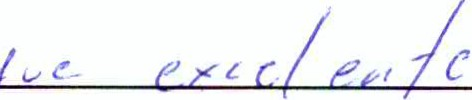 fue excelente